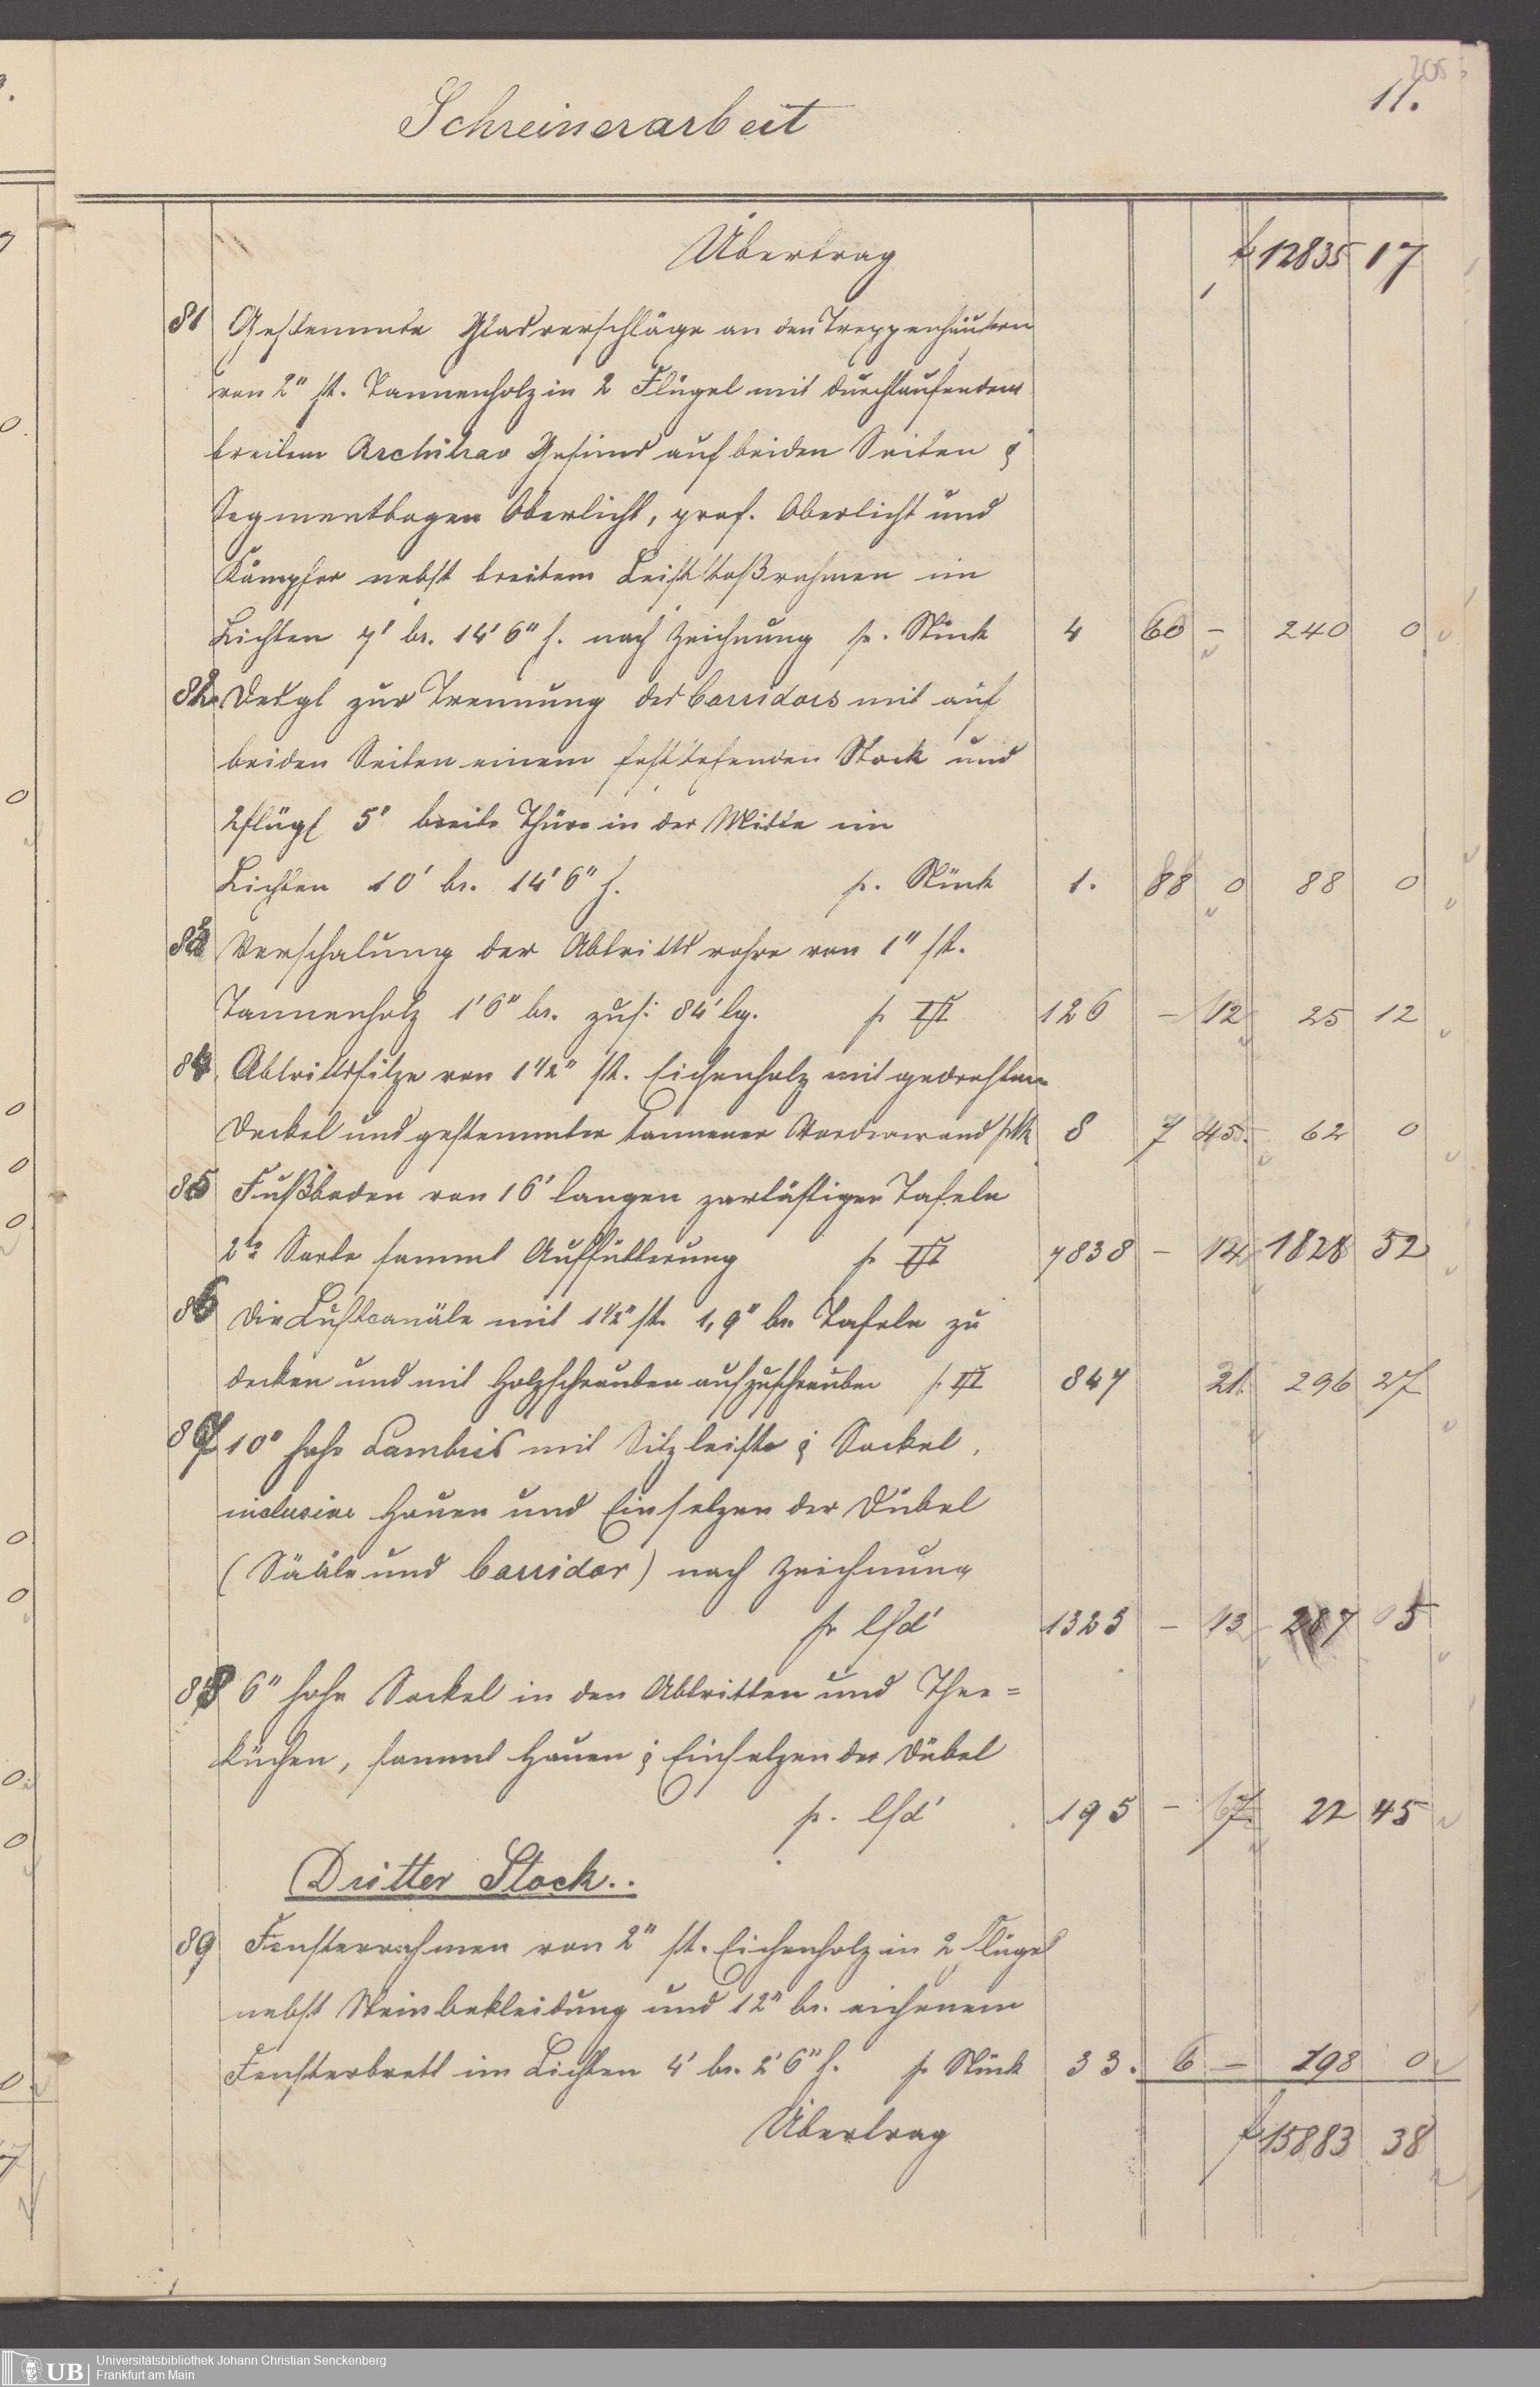 205
11.
Schreinerarbeit
Übertrag f 12835 17
81 Gestemmte Glasverschläge an den Treppenhäusern
von 2" st. Tannenholz in 2 Flügel mit durchlaufendem
breitem Architrav Gesims auf beiden Seiten &
Segmentbogen Oberlicht, prof. Oberlicht und
Kämpfer nebst breitem Leiststoßrahmen im
Lichten 7' br. 14' 6" h. nach Zeichnung pr. Stück 4 60 – 240 0
82 Desgl zur Trennung des Corridors mit auf
beiden Seiten einem feststehenden Stock und
2flügl 5' breite Thüre in der Mitte im
Lichten 10' br. 14' 6" h. pr. Stück 1. 88 0 88 0
83 Verschalung der Abtrittsrohre von 1" st.
Tannenholz 1' 6" br. zus: 84' lg. pr 126 – 12 25 12
84 Abtrittssitze von 1 1/2" st. Eichenholz mit gedrehtem
Deckel und gestemmter tannener Vorderwand pr Stk 8 7 45 62 0
85 Fußboden von 16' langen zartästigen Tafeln
2te Sorte sammt Auffütterung pr 7838 – 14 1828 52
86 Die Luftcanäle mit 1 1/2" st. 1,9" br. Tafeln zu
decken und mit Holzschrauben aufzuschrauben pr 847 21 296 27
87 10" hohe Lambris mit Sitzleiste & Sockel,
inclusive Hauen und Einsetzen der Dübel
(Sääle und Corridor) nach Zeichnung
pr lfd' 1325 – 13 287 05
88 6" hohe Sockel in den Abtritten und Thee=
küchen, sammt Hauen & Einsetzen der Dübel
pr. lfd' 195 – 7 22 45
Dritter Stock..
89 Fensterrahmen von 2" st. Eichenholz in 2 Flügel
nebst Steinbekleidung und 12" br. eichenem
Fensterbrett im Lichten 4' br. 2' 6" h. pr Stück 33. 6 – 198 0
Übertrag f 15883 38
UB
Universitätsbibliothek Johann Christian Senckenberg
Frankfurt am Main